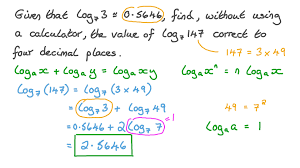 Given that log₇3 = 0.5646, find, without using
a calculator, the value of log₇147 correct to
four decimal places.
147 = 3 × 49
logₐx + logₐy = logₐxy
logₐxⁿ = n logₐx
log₇(147) = log₇(3 × 49)
= log₇3 + log₇49
49 = 7²
= 0.5646 + 2 log₇7 =1
logₐa = 1
= 2.5646